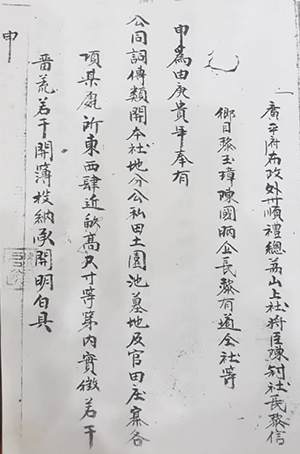 一
廣平府布政外順禮總茘山上社將臣陳釗社長黎信
鄉目黎玉璋陳國炳企長黎有道全社等
申為由庚貴年奉有
公同詞傳類開本社地分公私田土園池墓地及官田庄寨各
項某處所東西肆近畝高尺寸等第內實徵若干
畨荒若干開簿投納承開明白具
申